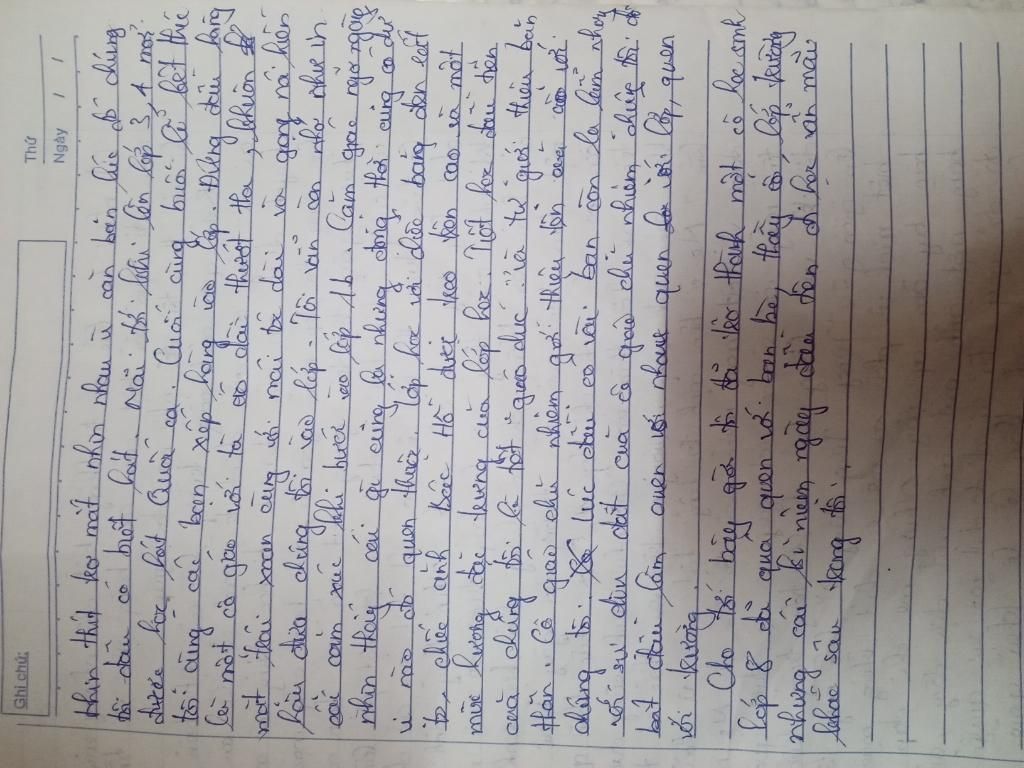 Thứ
Ngày / /
Ghi chú:
nhìn thút ko mắt nhìn nhau vì căn bản lúc đó đúng
tôi đâu có biết hát. Mãi tới lên lớp 3, 4 mới
được học hát Quốc ca. Cuối cùng buổi lễ kết thúc
tôi cùng các bạn xếp hàng vào lớp. Đứng đầu hàng
là một cô giáo với tà áo dài thướt tha, khuôn
mặt xoan cùng với mái tóc dài và giọng nói hiền
hậu đưa chúng tôi vào lớp. Tôi vẫn còn nhớ như in
cái cảm xúc khi bước vào lớp 1b. Cảm giác ngỡ ngàng
nhìn thấy cái gì cũng lạ nhưng đồng thời cũng có
vì nó đỗi quen thuộc. Lớp học với chiếc bảng đen
to, chiếc ảnh Bác Hồ được treo trên cao và một
mùi hương đặc trưng của lớp học. Tiết học đầu tiên
của chúng tôi là tiết " giáo dục " và tự giới thiệu bản
thân. Cô giáo chủ nhiệm giới thiệu tên với
chúng tôi. Lúc đầu có vài bạn còn la lắm nhưng
với sự dìu dắt của cô giáo chủ nhiệm chúng tôi đã
bắt đầu làm quen với nhau quen với lớp, quen
với trường
Cho tới bây giờ tôi đã trở thành một cô học sinh
lớp 8 đã quá quen với bạn bè, thầy cô, lớp trường
nhưng cái kỉ niệm ngày đầu tiên đi học vẫn mãi
khắc sâu trong tôi.